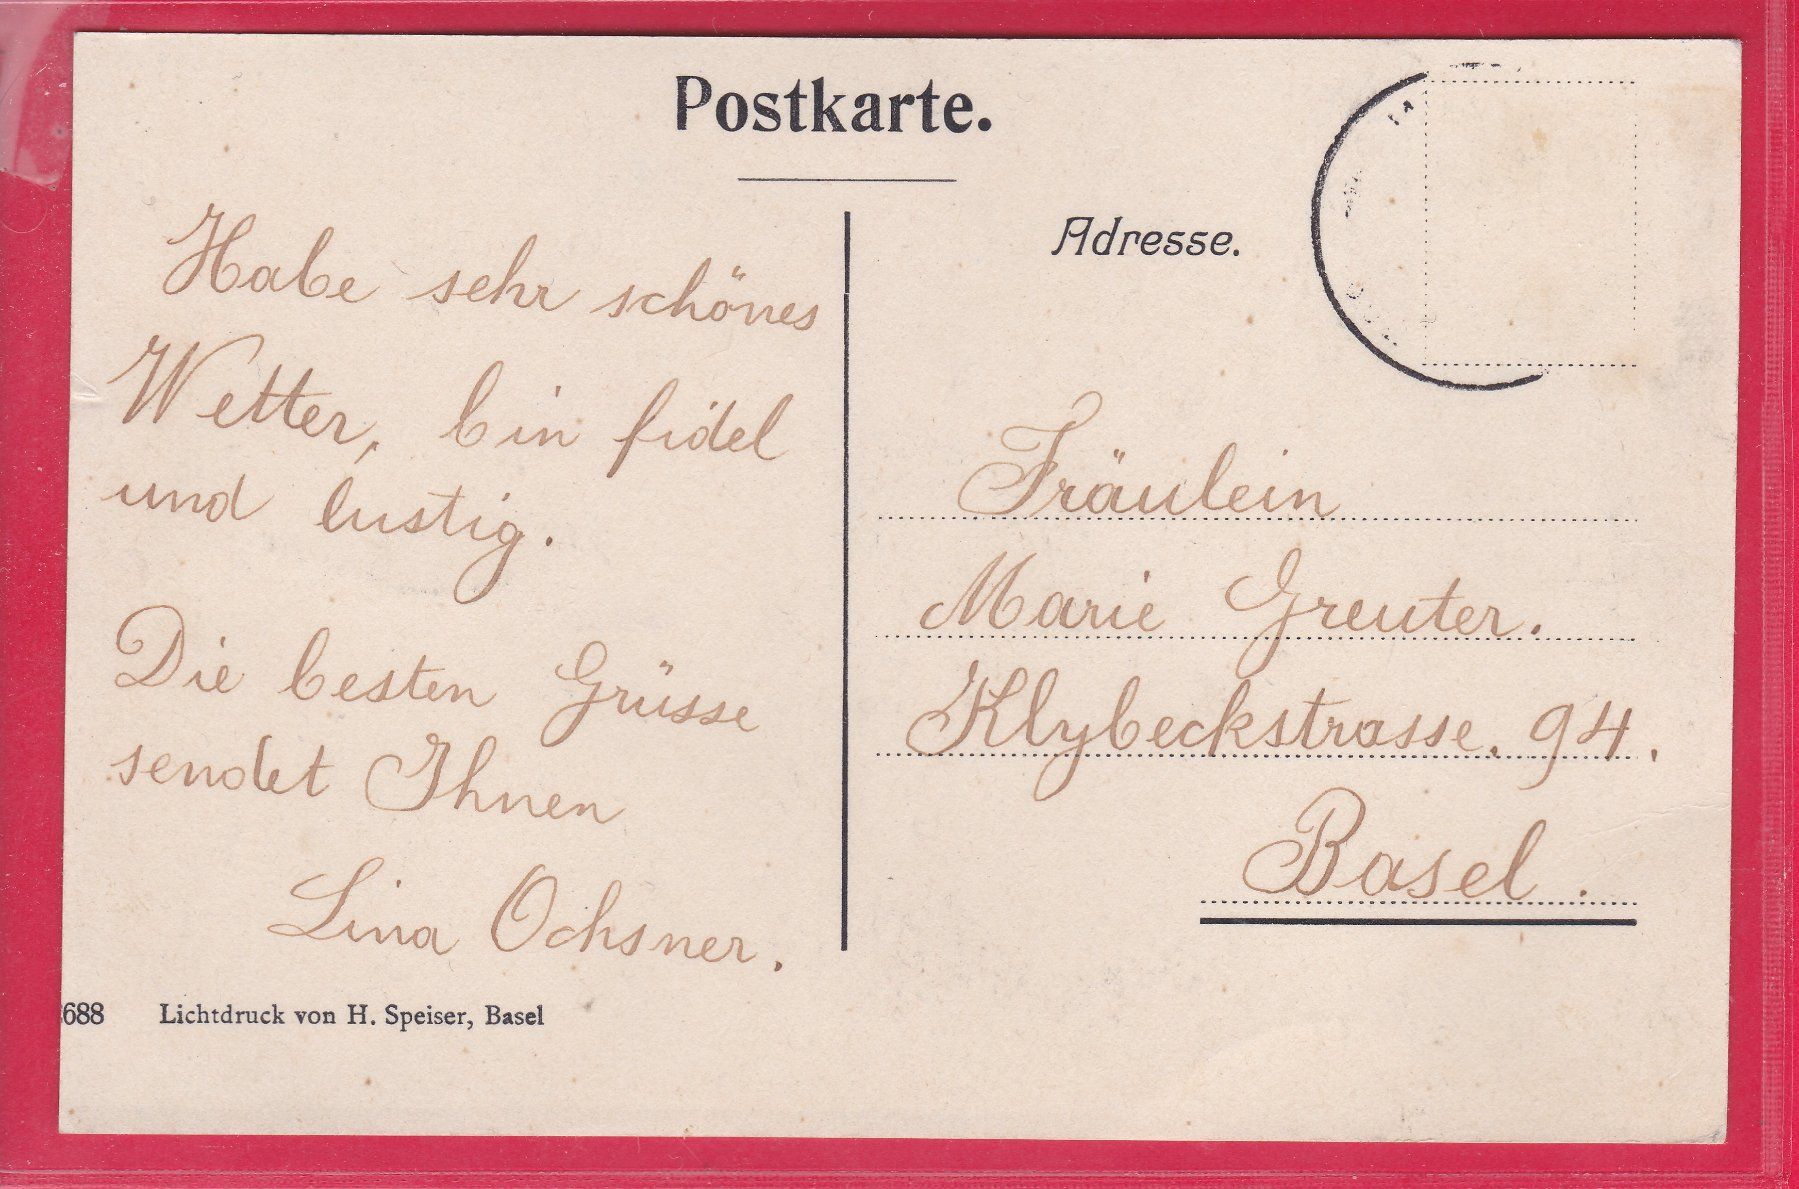 Postkarte.
Adresse.
Habe sehr schönes
Wetter, bin fidel
und lustig.
Die besten Grüsse
sendet Ihnen
Lina Ochsner.
Fräulein
Marie Greuter.
Klybeckstrasse. 94.
Basel.
688 Lichtdruck von H. Speiser, Basel